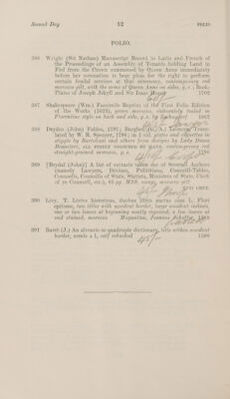 Second Day 52 FOLIO
FOLIO.
386 Wright (Sir Nathan) Manuscript Record in Latin and French of
the Proceedings of an Assembly of Tenants holding Land in
Fief from the Crown summoned by Queen Anne immediately
before her coronation to hear pleas for the right to perform
certain feudal services at that ceremony, contemporary red
morocco gilt, with the arms of Queen Anne on sides, g. e.; Book-
Plates of Joseph Jekyll and Sir Isaac 1702
387 Shakespeare (Wm.) Facsimile Reprint of the First Folio Edition
of the Works (1623), green morocco, elaborately tooled in
Florentine style on back and side, g. e. by
388 Dryden (John) Fables, 1797; Burger (G. A.) Leonora, Trans-
lated by W. R. Spencer, 1796; in 1 vol. plates and vignettes in
stipple by Bartolozzi and others from designs by Lady Diana
Beauclerc, contemporary red
straight-grained morocco, g. e.
389 [Brydal (John)] A list of extracts taken out of Several Authors
(namely Lawyers, Divines, Politicians, Councill-Tables,
Counsels, Councills of State, Statists, Ministers of State, Clerk
of ye Counsell, etc.), 65 pp. MSS. morocco gilt
390 Livy. T. Livius historicus, duobus libris auctus cum L. Flori
epitome, two titles with woodcut border, large woodcut initials,
one or two leaves at beginning neatly repaired, a few leaves at
end stained, morocco
391 Baret (J.) An alvearie or quadruple dictionary, title within woodcut
border, wants a l., calf rebacked 1580